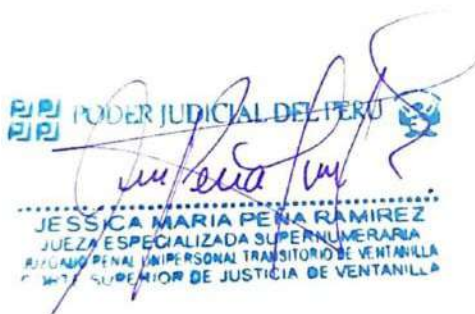 PJ PJ
PJ PJ PODER JUDICIAL DEL PERÚ
JESSICA MARIA PEÑA RAMIREZ
JUEZA ESPECIALIZADA SUPERNUMERARIA
JUZGADO PENAL UNIPERSONAL TRANSITORIO DE VENTANILLA
CORTE SUPERIOR DE JUSTICIA DE VENTANILLA